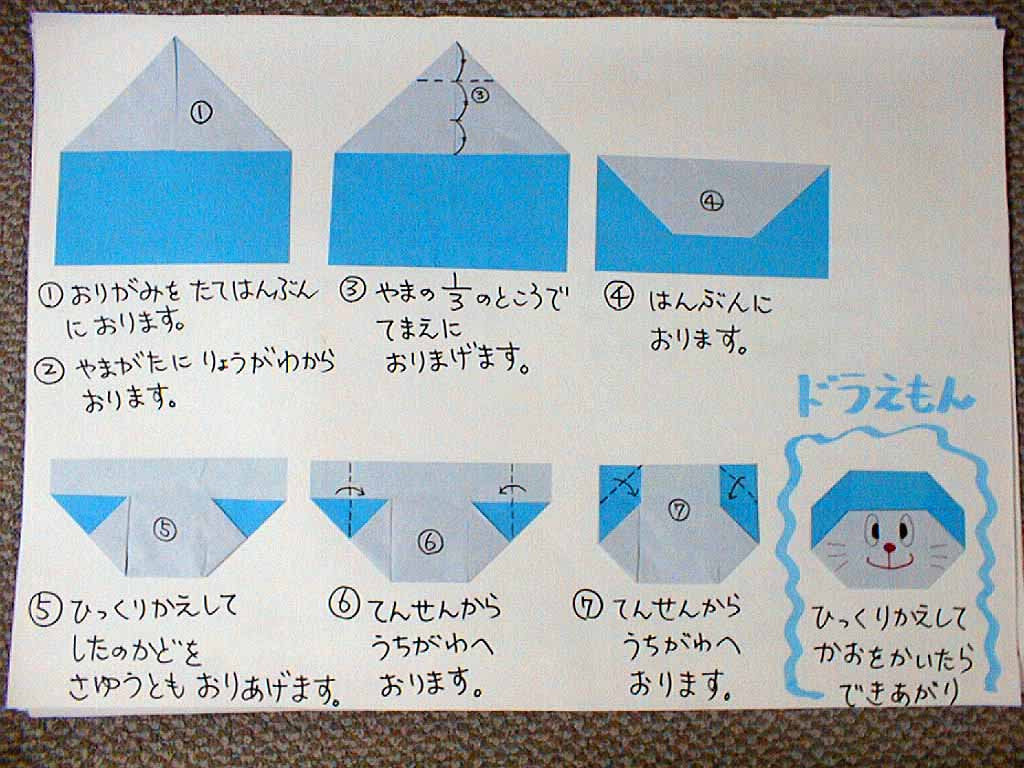 ①
③
④
①おりがみを たてはんぶん
に おります。
②やまがたに りょうがわから
おります。
③やまの 1/3 のところで
てまえに
おりまげます。
④はんぶんに
おります。
ドラえもん
⑤
⑥
⑦
⑤ひっくりかえして
したのかどを
さゆうとも おりあげます。
⑥てんせんから
うちがわへ
おります。
⑦てんせんから
うちがわへ
おります。
ひっくりかえして
かおをかいたら
できあがり